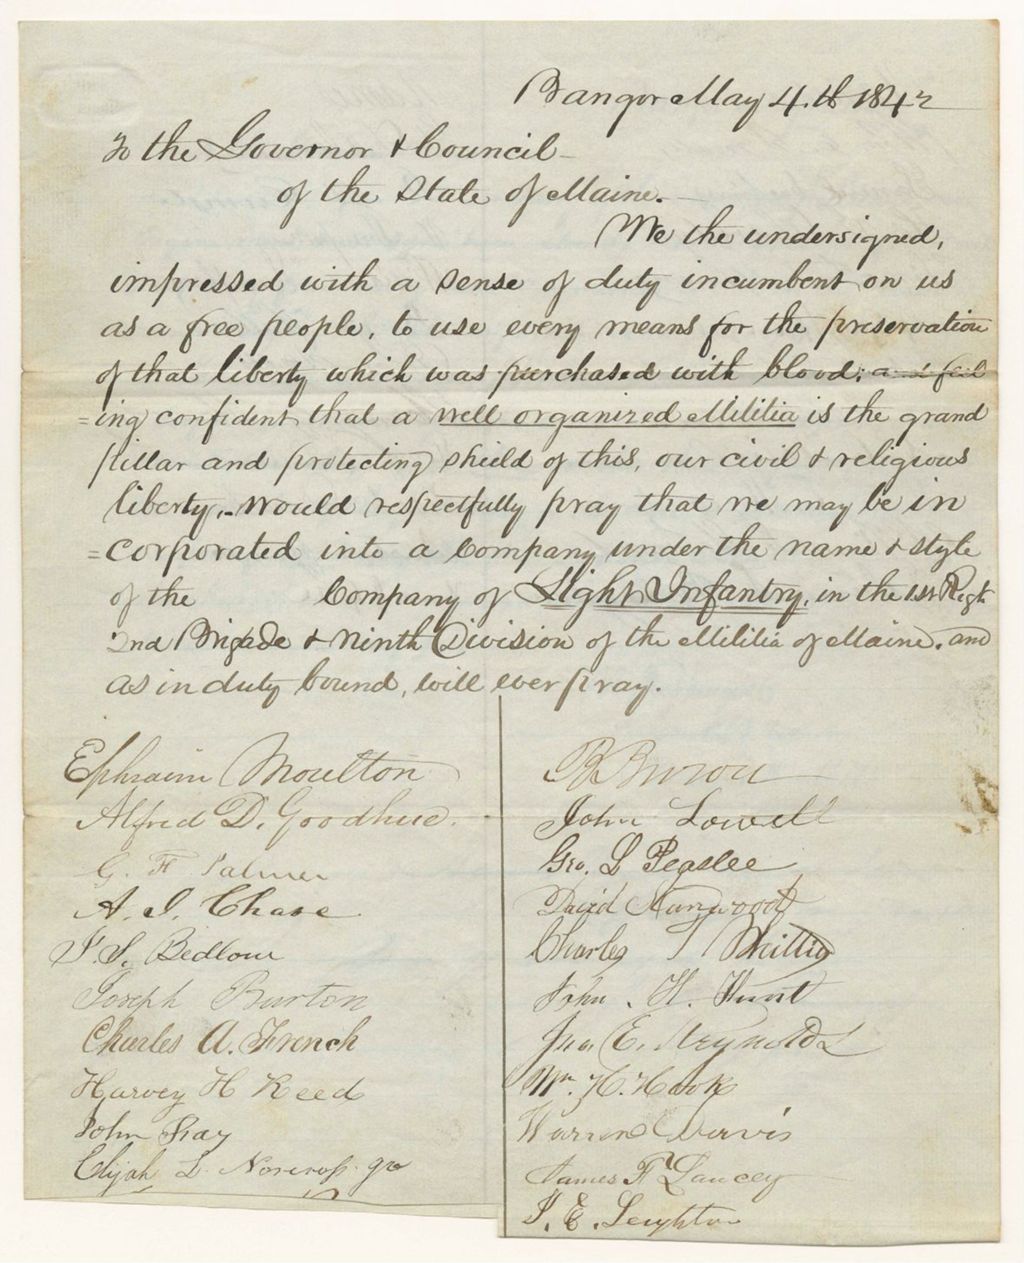 Bangor May 4.th 1842
To the Governor & Council
of the State of Maine.
We the undersigned,
impressed with a sense of duty incumbent on us
as a free people, to use every means for the preservation
of that liberty which was purchased with blood; and feel
=ing confident that a well organized Militia is the grand
pillar and protecting shield of this, our civil & religious
liberty, would respectfully pray that we may be in
=corporated into a Company under the name & style
of the Company of Light Infantry, in the 1st Regt
2nd Brigade & Ninth Division of the Militia of Maine. and
as in duty bound, will ever pray.
Ephraim Moulton
Alfred D. Goodhue.
G. F. Palmer
A. J. Chase
J. S. Bedlow
Joseph Burton
Charles A. French
Harvey H Reed
John Fray
Elijah L Norcross Jr
John Lowell
Geo. L Peaslee
David
Charles T
John H. Hunt
Jno. E. Reynolds
Wm. H. Hook
Warren
James F. Lancey
J. E. Leighton